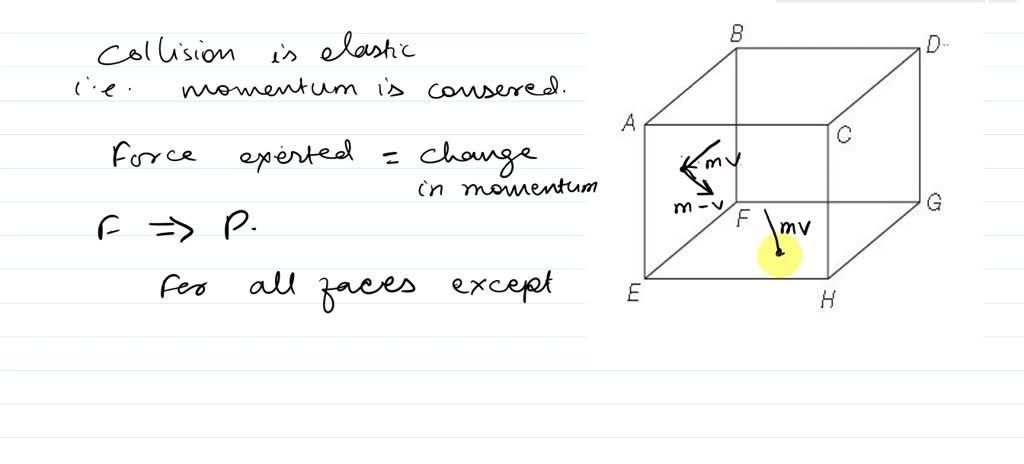 Collision is elastic
i.e. momentum is consered.
Force exerted = change
in momentum
F ⇒ P.
For all faces except
B
D
A
C
mv
m-v
F
G
mv
E
H